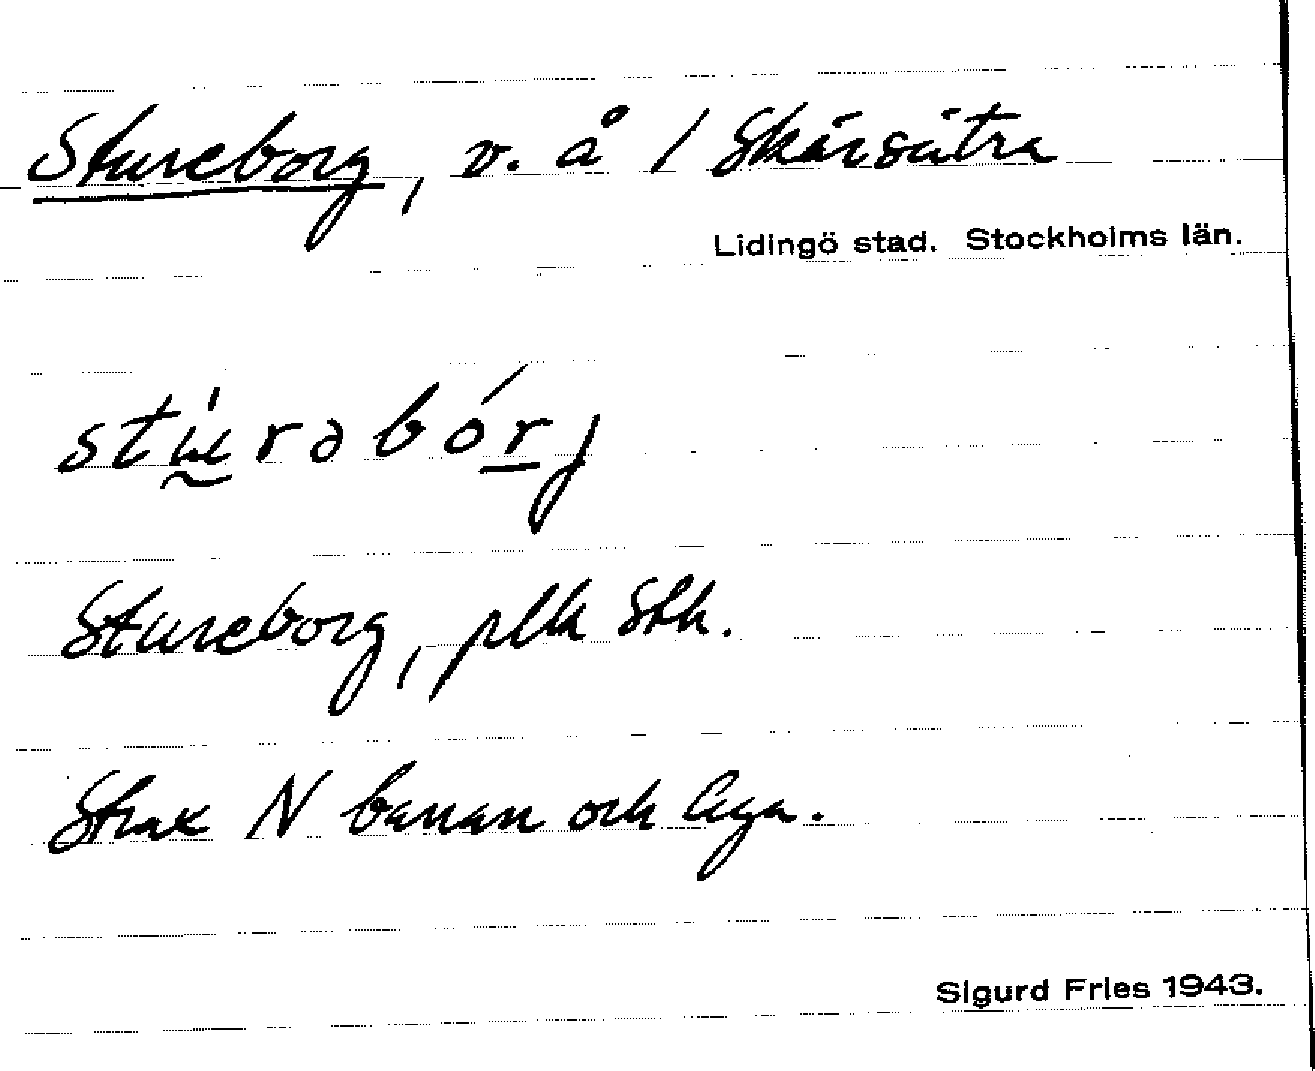 Stureborg, v. å / Skärsätra
Lidingö stad. Stockholms län.
stʉ̀rəbórj
Stureborg, plk Sthk.
Strax N banan och lega.
Sigurd Fries 1943.